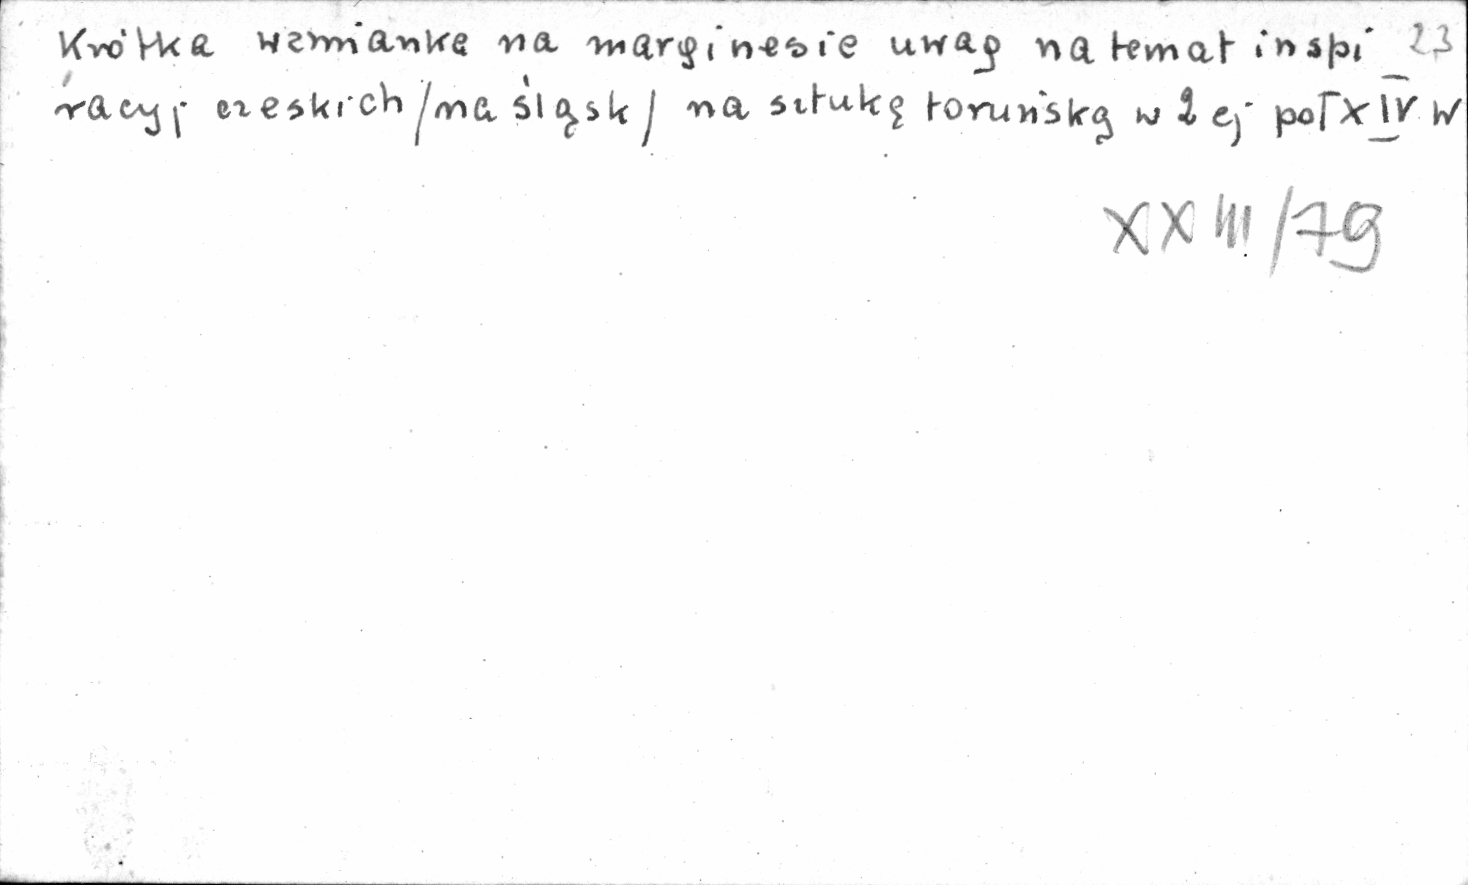 Krótka wzmianka na marginesie uwag na temat inspi 23
racyj czeskich /na śląsk/ na sztukę toruńską w 2 ej poł XIV w
XXIII/79